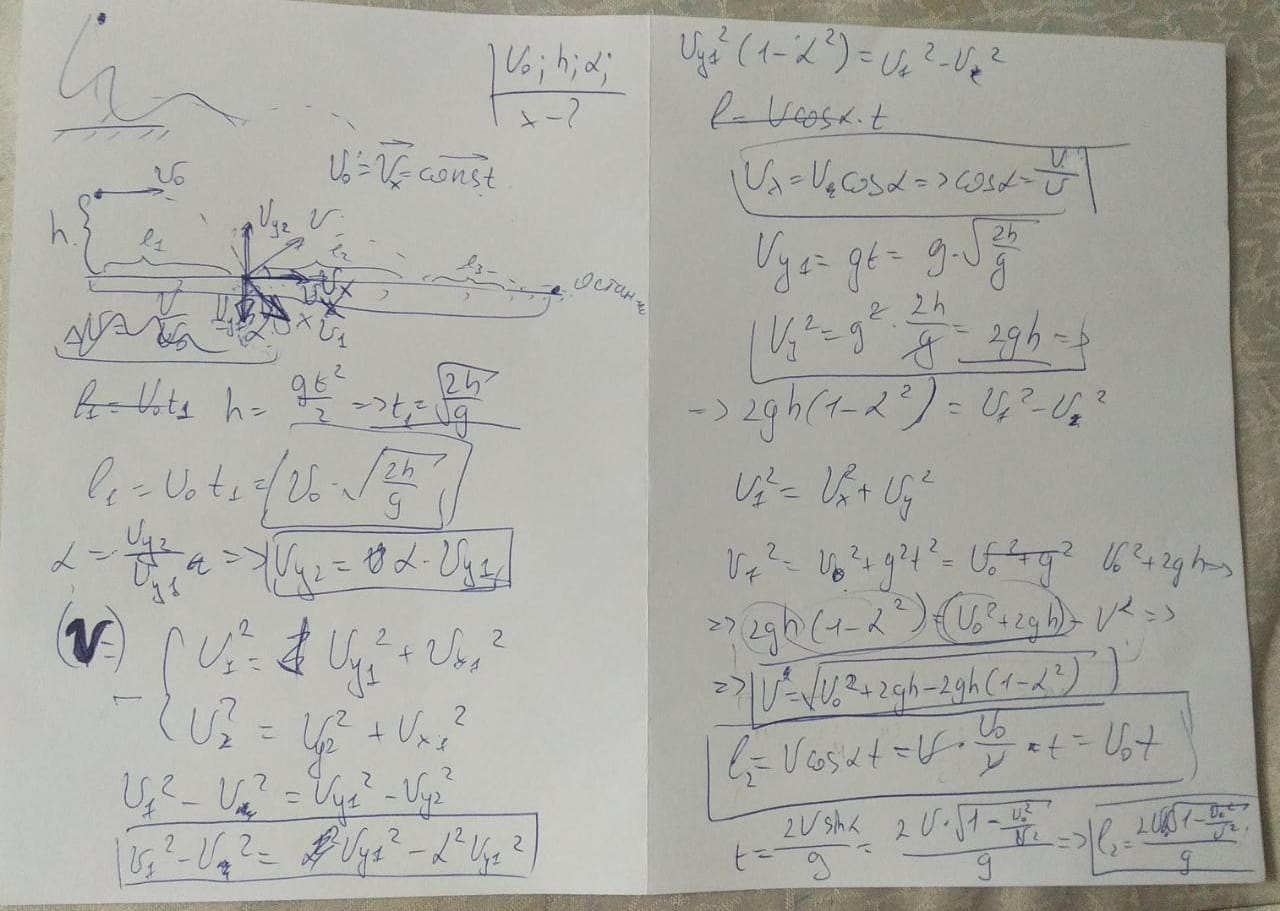 V₀; h; α;
x-?
V₀ = Vₓ = const
V₀
h
Vy2 V
l₁ l₂ l₃ Остан
Vx
V₁
l₁ = V₀t₁ h = gt²/2 => t₁ = √(2h/g)
l₁ = V₀ t₁ = V₀ · √(2h/g)
α = Vy2/Vy1 => Vy2 = α · Vy1
(V=) { V₁² = Vy1² + Vx1²
V₂² = Vy2² + Vx1²
V₁² - V₂² = Vy1² - Vy2²
V₁² - V₂² = Vy1² - α² Vy1²
Vy1² (1 - α²) = V₁² - V₂²
l = V cosα · t
Vx = V₂ cosα => cosα = V/V
Vy1 = gt = g · √(2h/g)
Vy² = g² · 2h/g = 2gh =>
-> 2gh(1 - α²) = V₁² - V₂²
V₁² = Vx² + Vy²
V₁² = V₀² + g²t² = V₀² + g² V₀² + 2gh =>
=> 2gh(1 - α²) = (V₀² + 2gh) - V² =>
=> V = √(V₀² + 2gh - 2gh(1 - α²))
l₂ = V cosα t = V · V₀/V · t = V₀ t
t = 2V sinα/g = 2V · √(1 - V₀²/V²)/g => l₂ = 2VV₀√(1 - V₀²/V²)/g